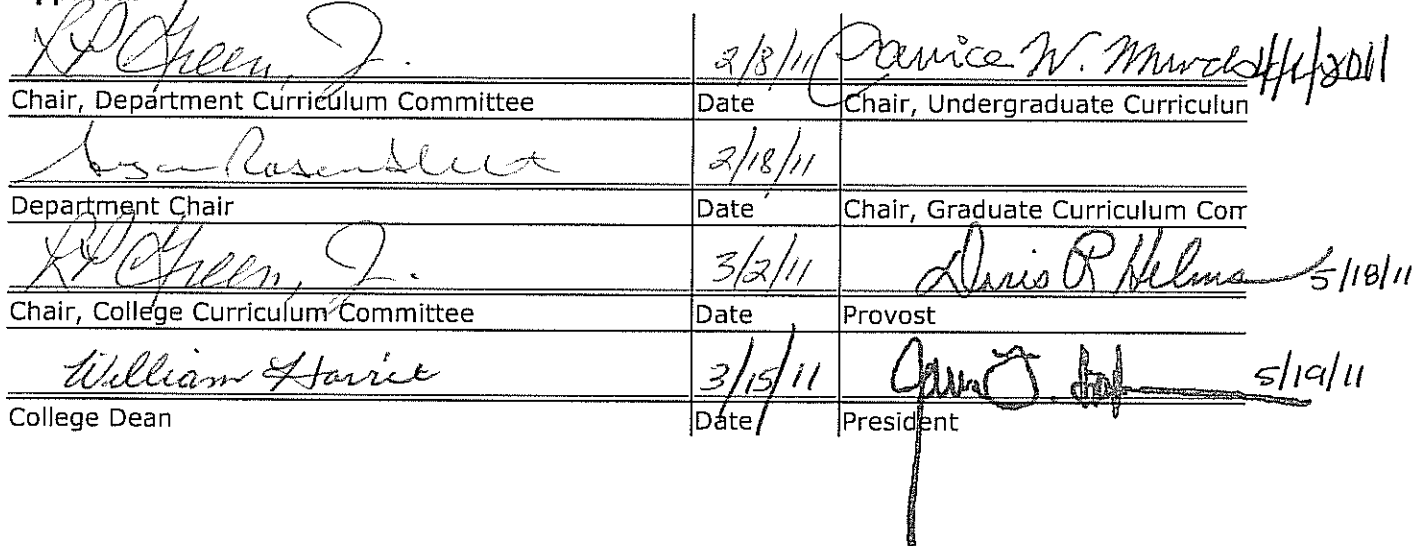 RP Green, Jr. 2/8/11 Janice W. 4/1/2011
Chair, Department Curriculum Committee Date Chair, Undergraduate Curriculun
Susan 2/18/11
Department Chair Date Chair, Graduate Curriculum Com
RP Green, Jr. 3/2/11 Doris R Helms 5/18/11
Chair, College Curriculum Committee Date Provost
William 3/15/11 5/19/11
College Dean Date President